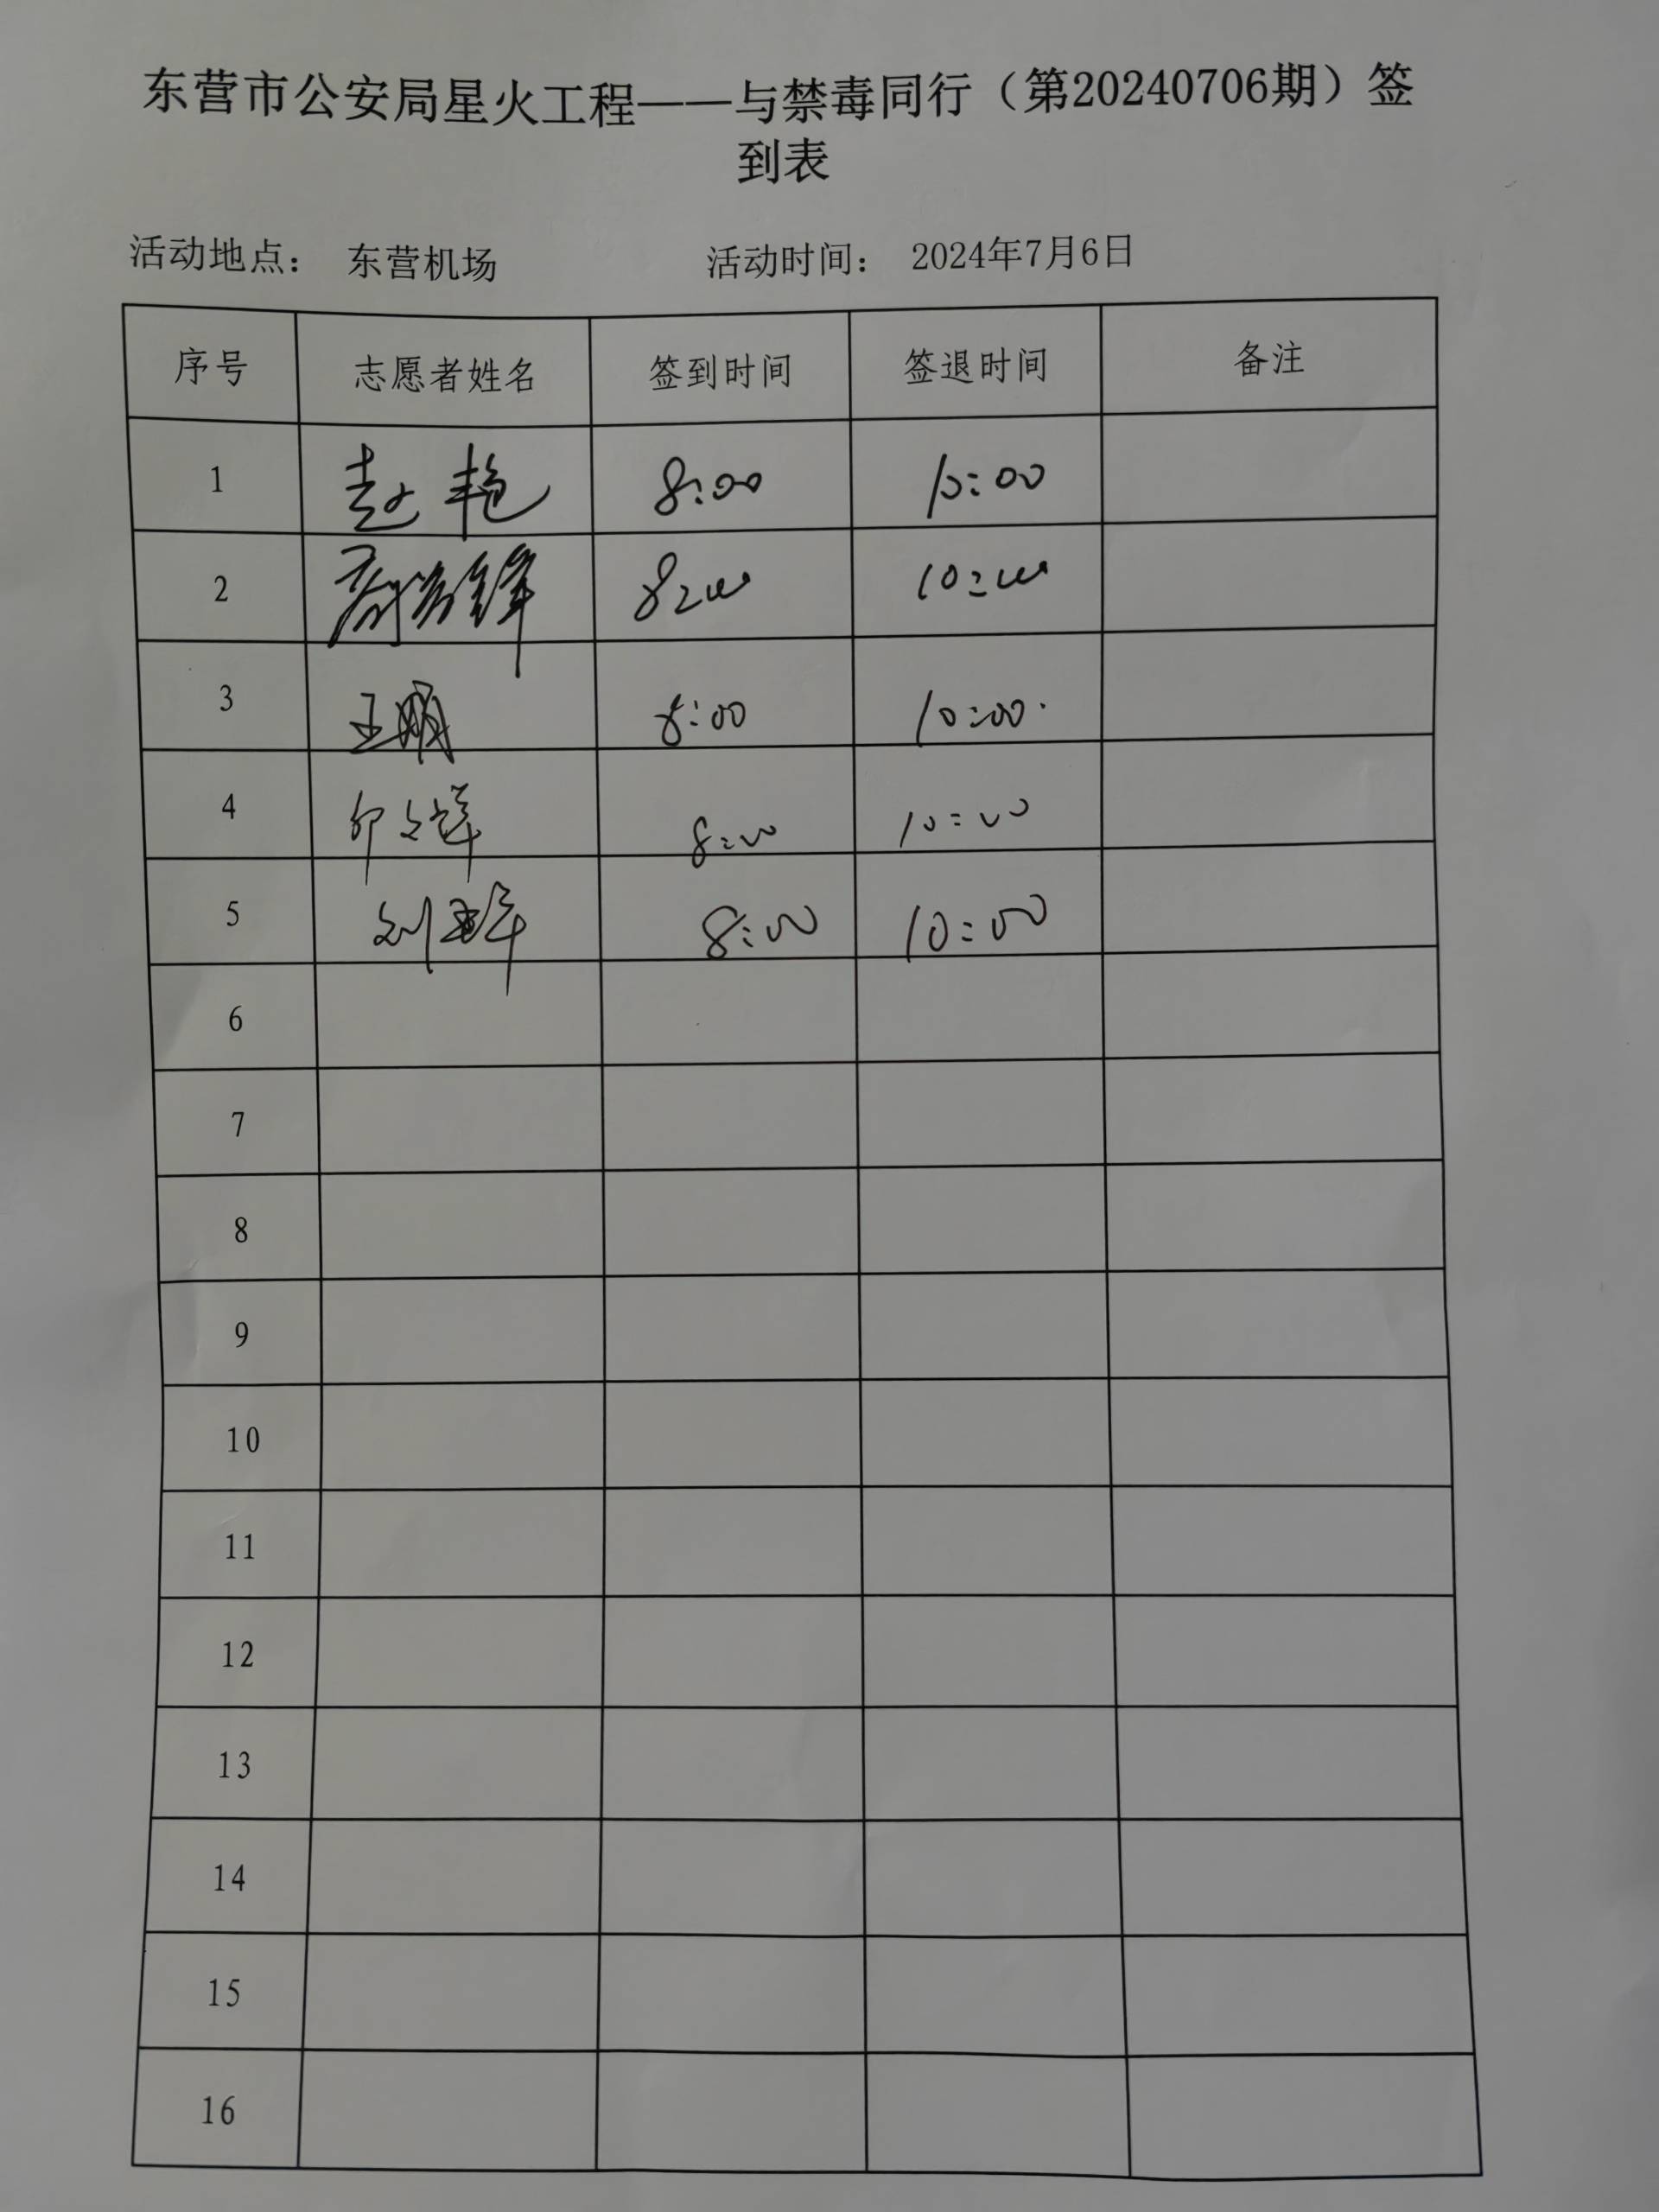 东营市公安局星火工程——与禁毒同行（第20240706期）签
到表
活动地点： 东营机场 活动时间： 2024年7月6日
序号 志愿者姓名 签到时间 签退时间 备注
1 赵艳 8:00 10:00
2 8:00 10:00
3 王鹏 8:00 10:00
4 8:00 10:00
5 刘 8:00 10:00
6
7
8
9
10
11
12
13
14
15
16